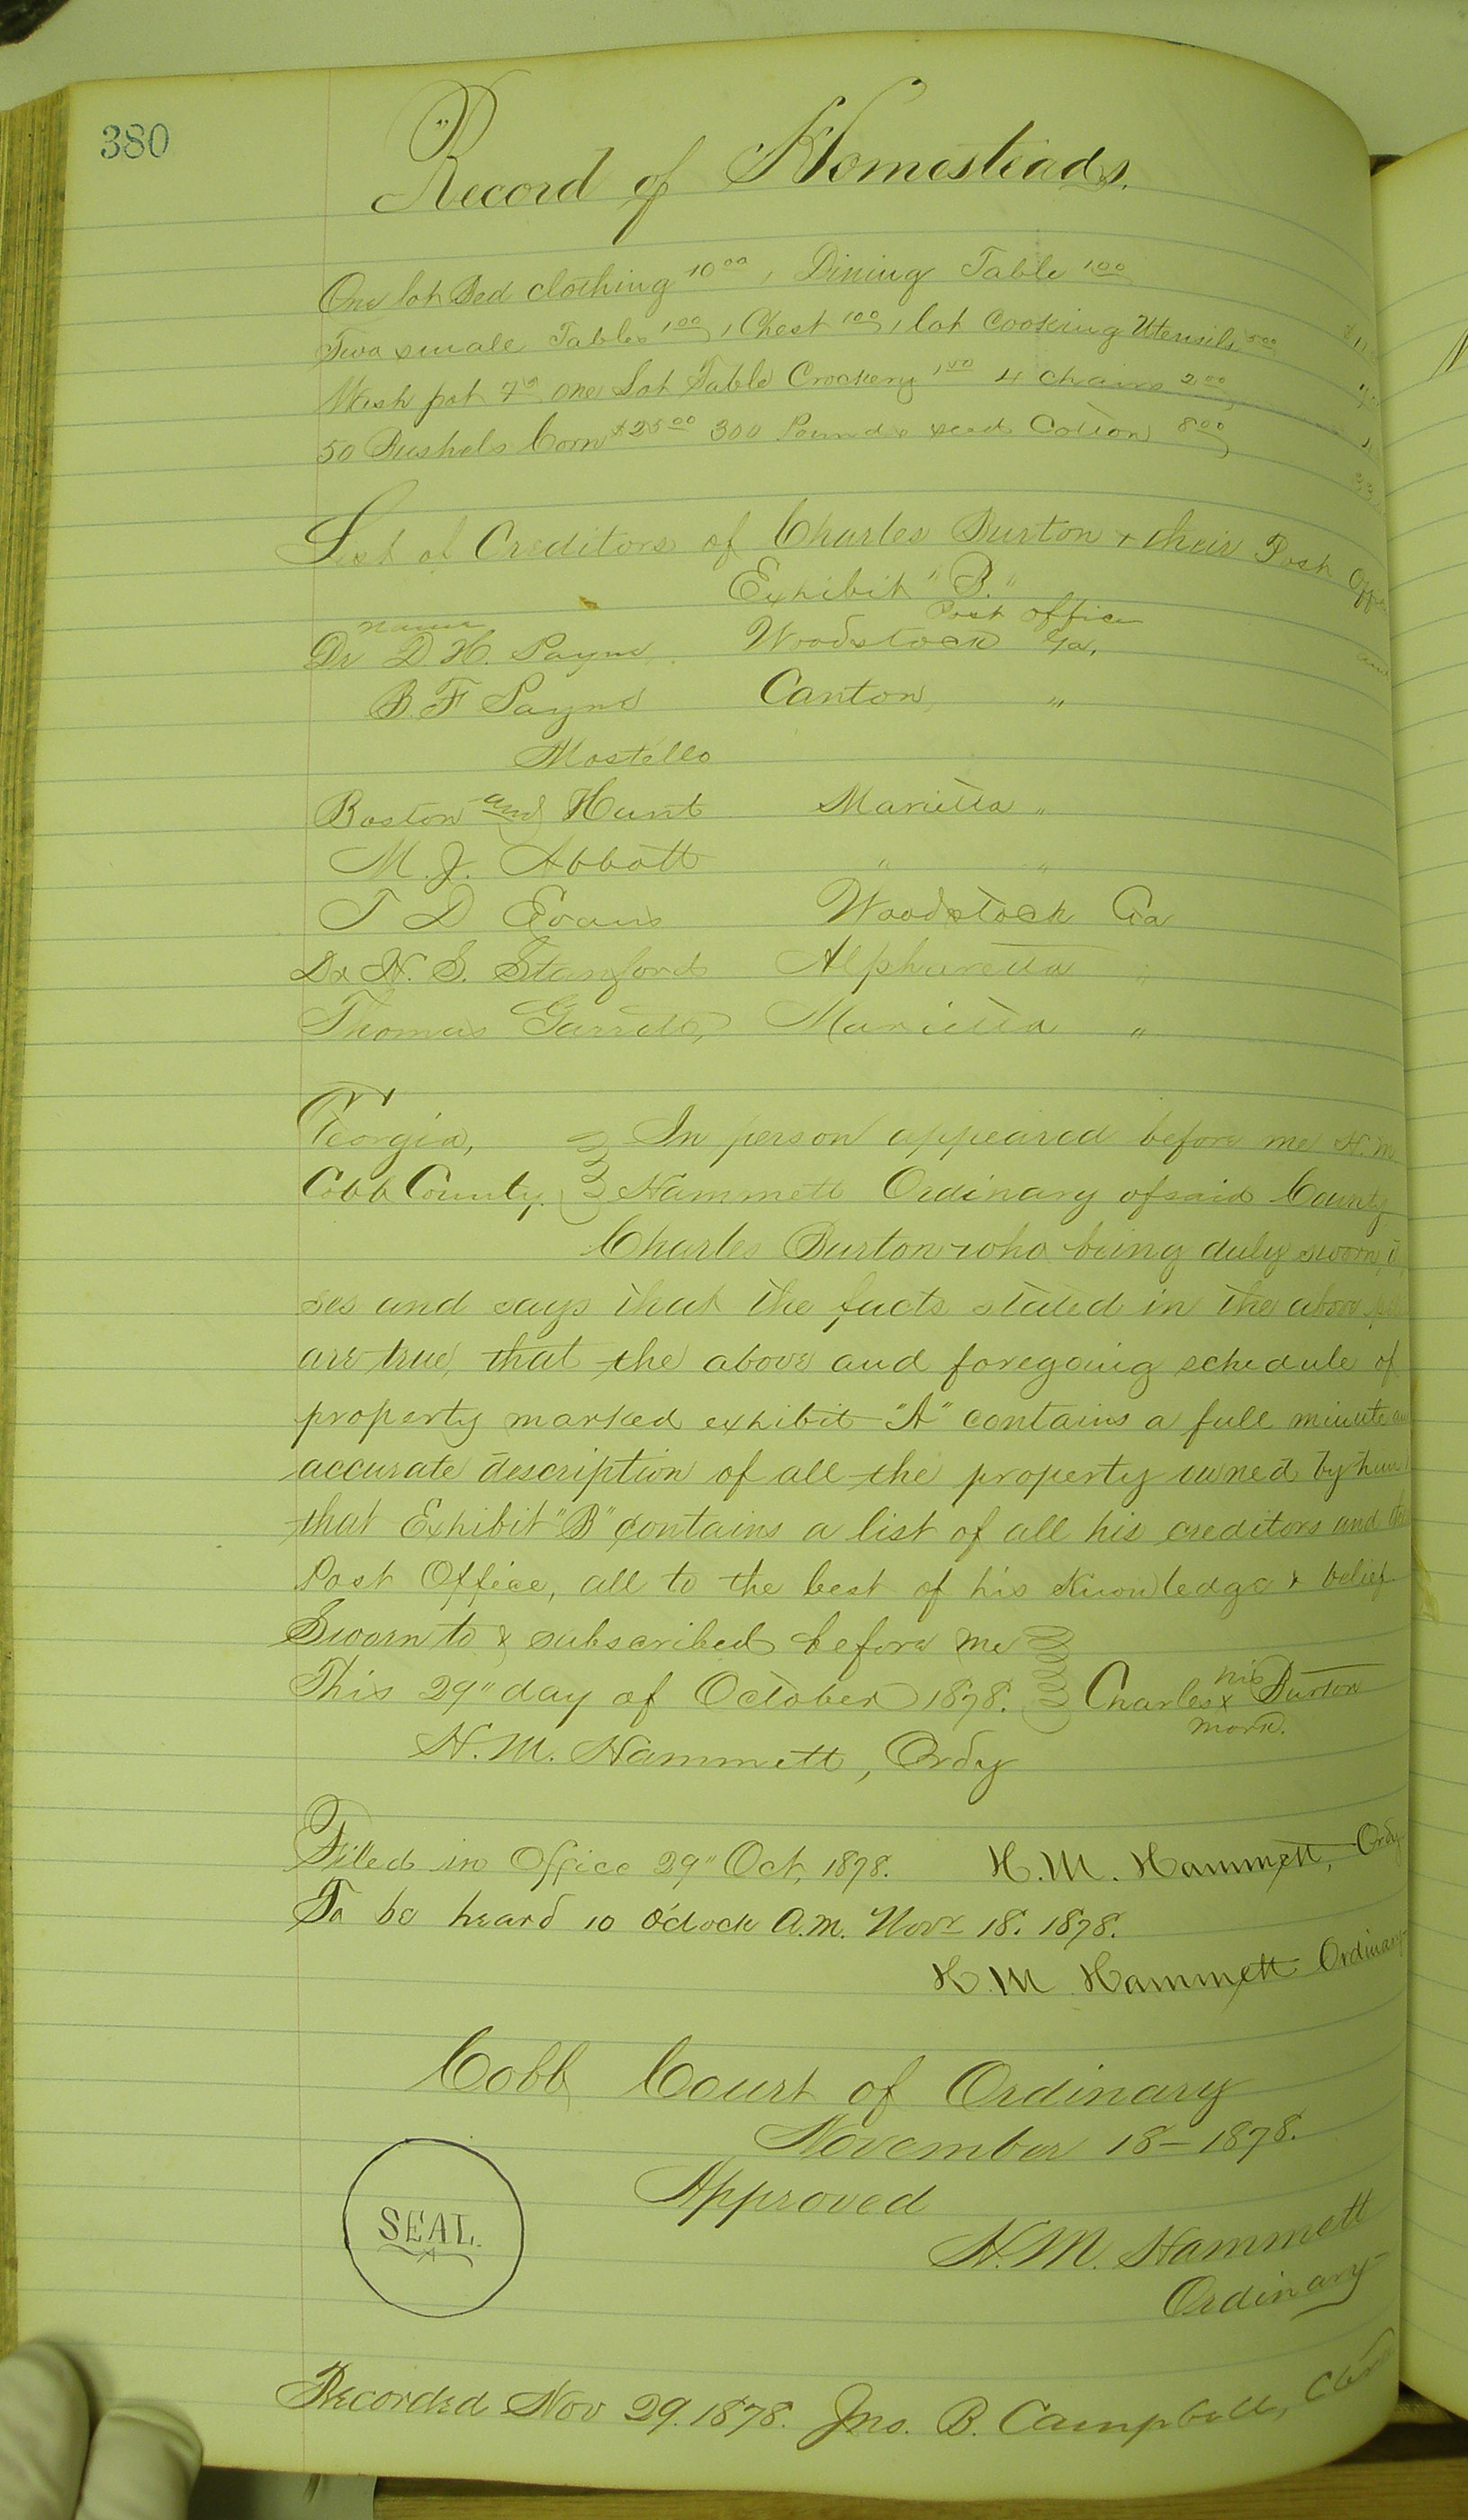 380
Record of Homesteads.
One lot Bed clothing 10 00, 1 Dining Table 1 00
Two smale Tables 1 00, 1 Chest 1 00, 1 lot Cooking Utensils 5 00
Wash pot one Lot Table Crockery 1 50 4 chairs 2 00
50 Bushels Corn $25 00 300 Pounds seed Cotton 8 00
List of Creditors of Charles Burton & their Post Office
Exhibit "B."
name Post office
Dr D. H. Payne Woodstock Ga,
B. F Payne Canton "
Mostello
Boston and Hunt Marietta "
M. J. Abbott " "
T D Evans Woodstock Ga
Dr N. S. Stanford Alpharetta "
Thomas Marietta "
Georgia, } In person appeared before me H. M
Cobb County. } Hammett Ordinary of said County
Charles Burton who being duly sworn,
ses and says that the facts stated in the above
are true, that the above and foregoing schedule of
property marked exhibit "A" contains a full minute
accurate description of all the property owned by him
that Exhibit "B" contains a list of all his creditors and
Post Office, all to the best of his Knowledge & belief
Sworn to & subscribed before me }
This 29" day of October 1878. } Charles his x mark. Burton
H. M. Hammett, Ordy
Filed in Office 29" Oct, 1878. H. M. Hammett, Ordy
To be heard 10 O'clock A.M. Novr 18. 1878.
H. M Hammett Ordinary
Cobb Court of Ordinary
November 18 - 1878.
Approved
SEAL.
H. M. Hammett
Ordinary
Recorded Nov 29. 1878. Jno. B. Campbell, Clerk